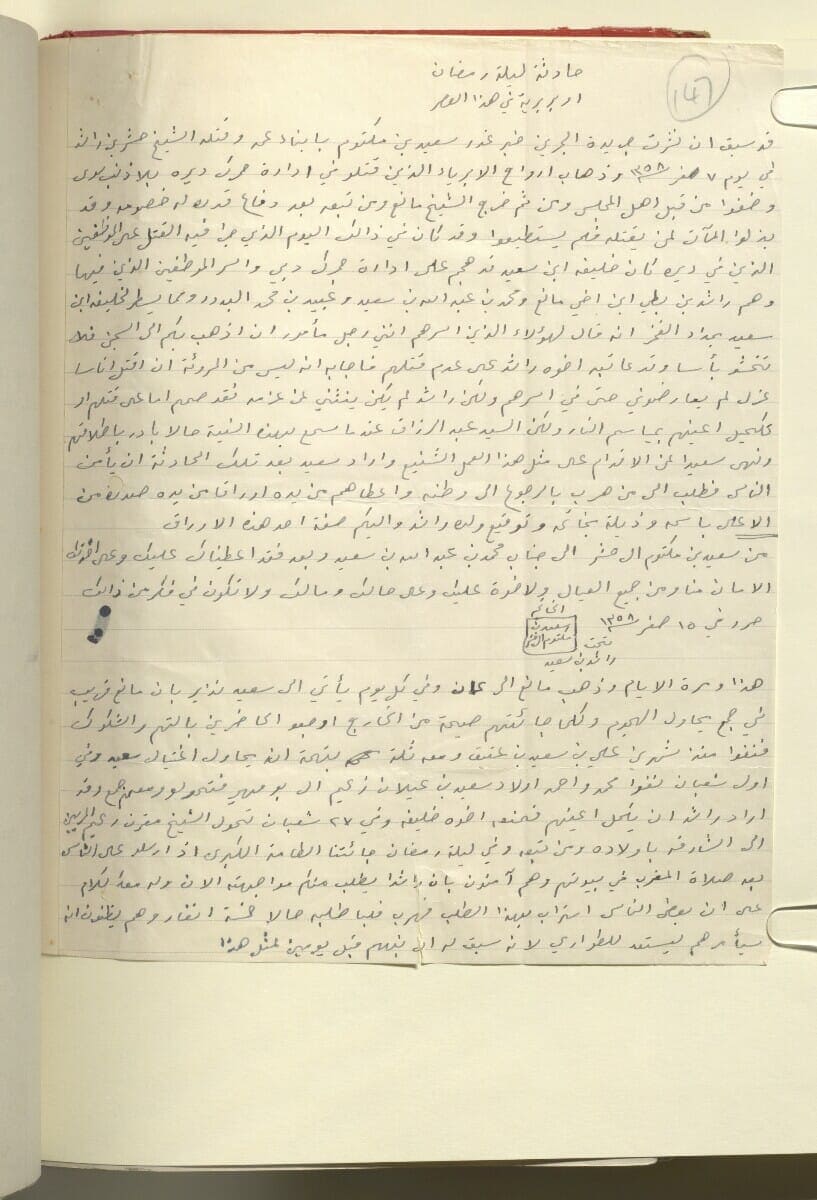 حادثة ليلة رمضان
او بربرية في هذا العصر
147
قد سبق ان نشرت جريدة البحرين خبر غدر سعيد بن مكتوم بابناء عمه وقتله الشيخ حشر بن راشد
في يوم ٧ صفر ١٣٥٨ وذهاب ارواح الابرياء الذين قتلو في ادارة جمرك ديره بلا ذنب سوى
وضفوا من قبل اهل المجلس ومن ثم خرج الشيخ مانع ومن تبعه بعد دفاع قدره له خصومه وقد
بذلوا المآت لمن يقتله فلم يستطيعوا وقد كان في ذالك اليوم الذي جرا فيه القتل على الموظفين
الذين في ديره كان خليفه ابن سعيد قد هجم على ادارة جمرك دبي واسر الموظفين الذين فيها
وهم راشد بن بطي ابن اخي مانع ومحمد بن عبد الله بن سعيد وعبيد بن محمد البدور ومما يسطر لخليفه ابن
سعيد بمداد الفخر انه قال لهؤلاء الذين اسرهم انني رجل مأمور ان اذهب بكم الى السجن فلا
تخشو بأسا وقد عاتبه اخوه راشد على عدم قتلهم فاجابه انه ليس من المروئة ان اقتل اناسا
عزل لم يعارضوني حتى في اسرهم ولكن راشد لم يكن ينثني عن عزمه فقد صمم اما على قتلهم او
تكحيل اعينهم بمياسم النار ولكن السيد عبد الرزاق عندما سمع بهذه النية حالا بادر باطلاقهم
ونهى سعيدا عن الاقدام على مثل هذا العمل الشنيع واراد سعيد بعد تلك الحادثة ان يأمن
الناس فطلب الى من هرب بالرجوع الى وطنه واعطاهم من يده اوراقا من يده صدره من
الاعلى باسمه وذيله بخاتمه وتوقيع ولده راشد واليكم صفة احد هذه الاوراق
من سعيد بن مكتوم ال حشر الى جناب محمد بن عبد الله بن سعيد وبعد فقد اعطيناك عليك وعلى اخوتك
الامان منا ومن جميع العيال ولا خوة عليك وعلى حالك ومالك ولا تكون في فكر من ذالك
حرر في ١٥ صفر ١٣٥٨
الخاتم
سعيد بن
مكتوم ال حشر
تحت
راشد بن سعيد
هذا ومرة الايام وذهب مانع الى عمان وفي كل يوم يأتي الى سعيد نذير بان مانع قريب
في جمع يحاول الهجوم وكلما جائتهم صيحة من الخارج اوصبو الحاضرين بالتهم والشكوك
فنفوا منذ شهرين علي بن سعيد بن عتق ومعه ثلة بتهمة انه يحاول اغتيال سعيد وفي
اول شعبان نفوا محمد واحمد اولاد سعيد بن غيلان زعيم ال بو مهير فتحولو ومعهم جمع وقد
اراد راشد ان يكحل اعينهم فمنعه اخوه خليفه وفي ٢٧ شعبان تحول الشيخ مقرن زعيم المريين
الى الشارقه باولاده ومن تبعه وفي ليلة رمضان جائتنا الطامة الكبرى اذ ارسلو على الناس
بعد صلاة المغرب في بيوتهم وهم آمنون بان راشدا يطلب منكم مواجهته الان وله معكم كلام
على ان بعض الناس استراب بهذا الطلب فهرب فلبا طلبه حالا خمسة انفار وهم يظنون انه
سيأمرهم ليستعد للطواري لانه سبق له ان نبههم قبل يومين لمثل هذا